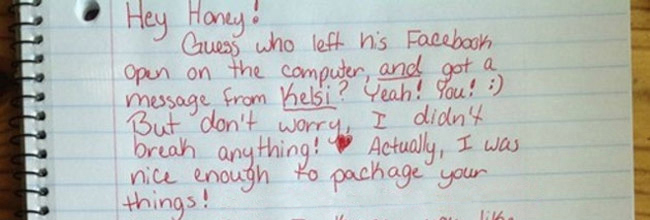 Hey Honey!
Guess who left his Facebook
open on the computer, and got a
message from Kelsi? Yeah! You! :)
But don't worry, I didn't
break anything! ❤ Actually, I was
nice enough to package your
things!